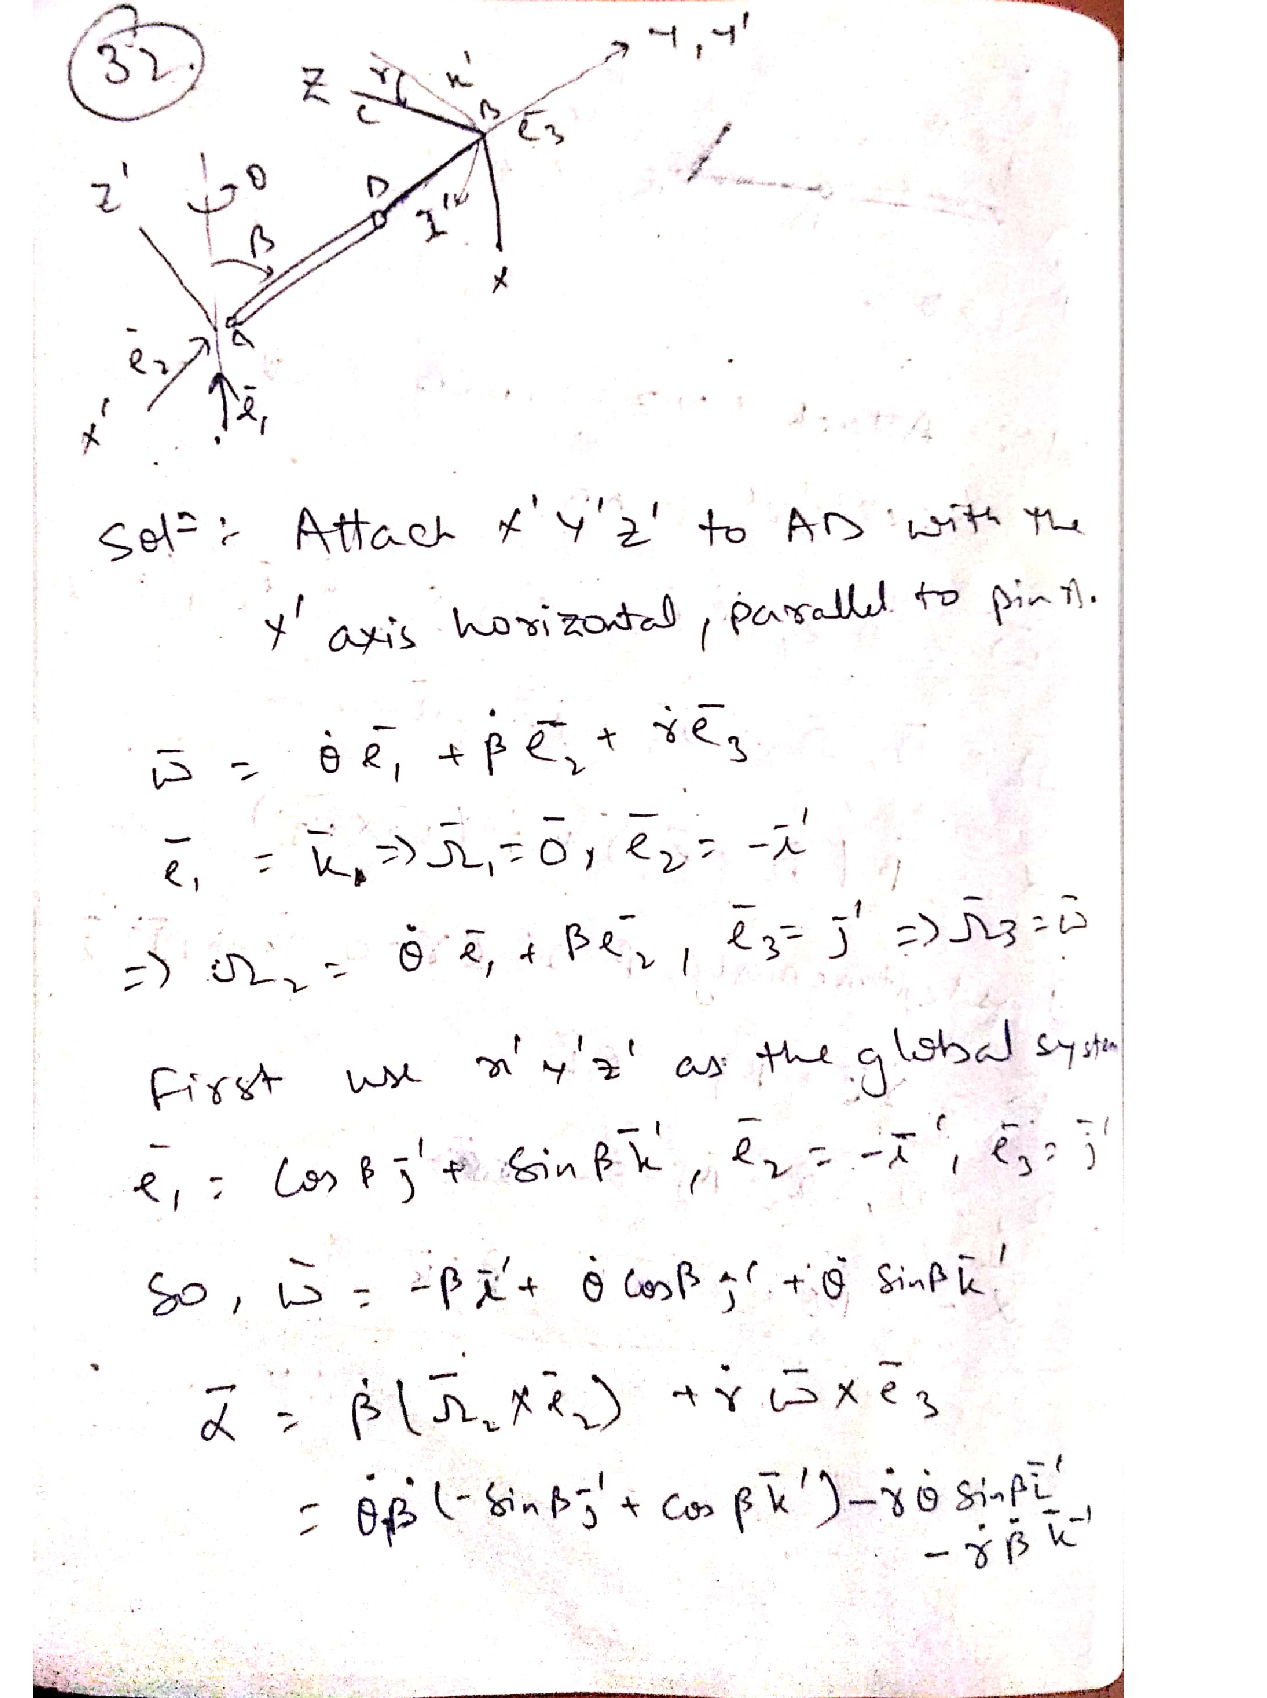 32.
Y, Y'
Z
γ
x'
C
B
ē₃
z'
θ
D
z'
β
x
A
ē₂
ē₁
x'
Solⁿ: Attach x'y'z' to AD with the
x' axis horizontal, parallel to pin A.
ω̄ = θ̇ ē₁ + β̇ ē₂ + γ̇ ē₃
ē₁ = k̄, => Ω̄₁ = 0̄, ē₂ = -ī'
=> Ω₂ = θ̇ ē₁ + βē₂, ē₃ = j̄' => Ω̄₃ = ω̄
First use x'y'z' as the global system
ē₁ = Cos β j̄' + Sin β k̄', ē₂ = -ī', ē₃ = j̄'
So, ω̄ = -β̇ ī' + θ̇ Cosβ j̄' + θ̇ Sinβ k̄'
ᾱ = β̇ (Ω̄₂ x ē₂) + γ̇ ω̄ x ē₃
= θ̇β̇ (-Sinβ j̄' + Cos β k̄') - γ̇ θ̇ Sinβ ī'
- γ̇ β̇ k̄'